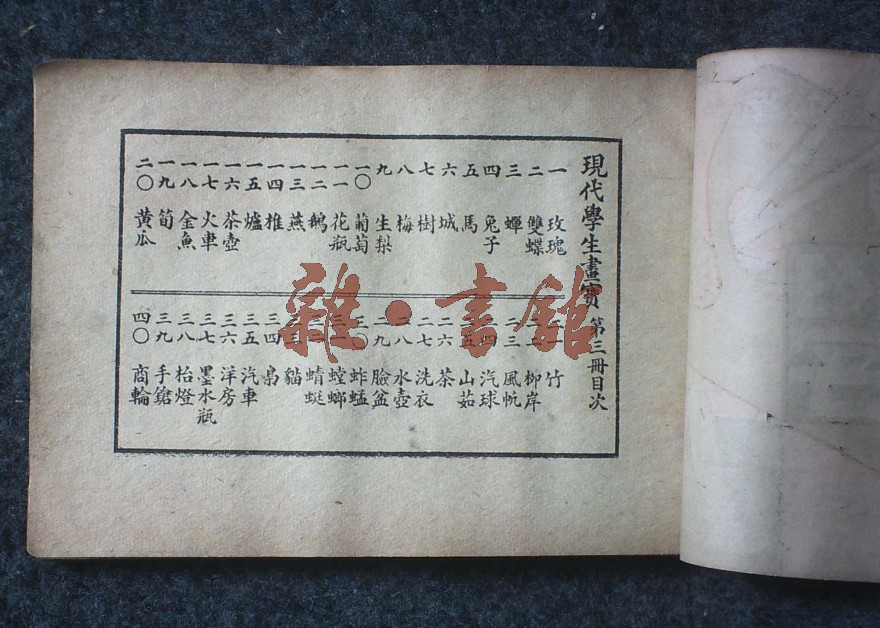 現代學生畫寶 第三冊目次
一 玫瑰
二 雙蝶
三 蟬
四 兔子
五 馬
六 城
七 樹
八 梅
九 生梨
一〇 葡萄
一一 花瓶
一二 鵝
一三 燕
一四 椎
一五 爐
一六 茶壺
一七 火車
一八 金魚
一九 筍
二〇 黃瓜
竹
柳岸
二三 風帆
汽球
山茹
二六 茶
二七 洗衣
二八 水壺
二九 臉盆
蚱蜢
螳螂
蜻蜓
貓
三四 梟
三五 汽車
三六 洋房
三七 墨水瓶
三八 枱燈
三九 手鎗
四〇 商輪
雜·書館